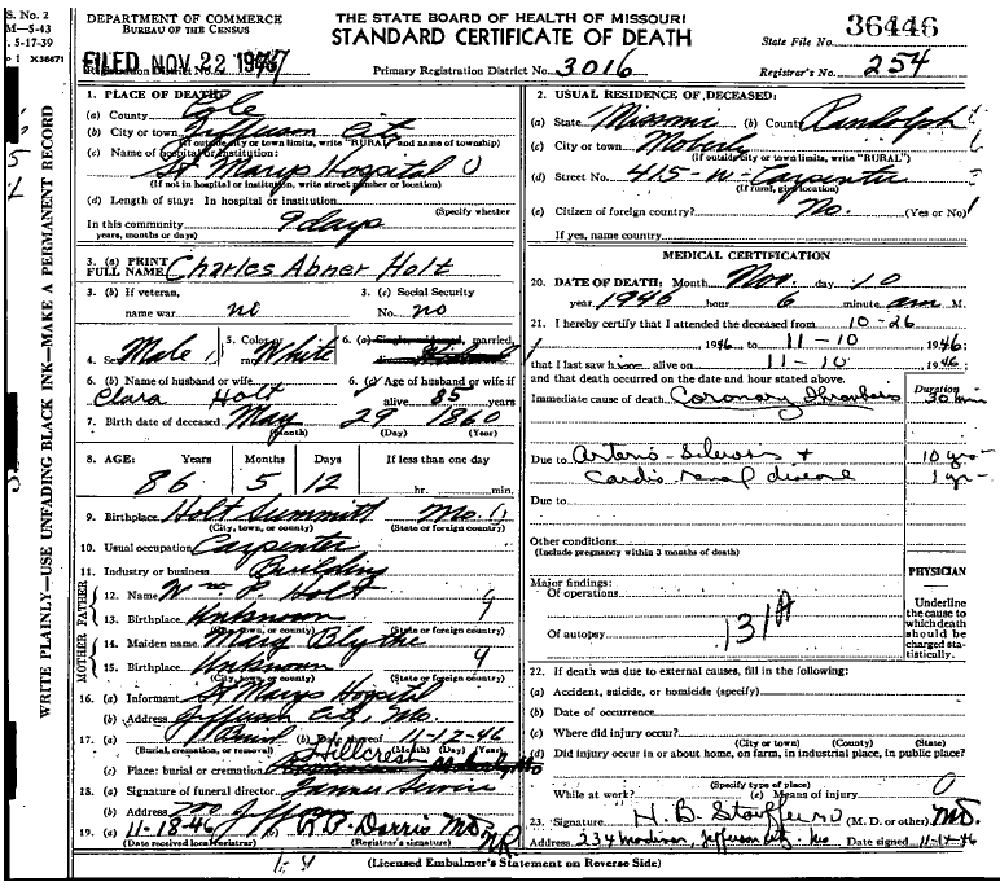 S. No. 2
M—5-43
5-17-39
X36671
DEPARTMENT OF COMMERCE
BUREAU OF THE CENSUS
THE STATE BOARD OF HEALTH OF MISSOURI
STANDARD CERTIFICATE OF DEATH
State File No. 36446
FILED NOV 22 1947
Primary Registration District No. 3016
Registrar's No. 254
WRITE PLAINLY—USE UNFADING BLACK INK—MAKE A PERMANENT RECORD
1. PLACE OF DEATH:
(a) County Cole
(b) City or town Jefferson City
(If outside city or town limits, write "RURAL" and name of township)
(c) Name of hospital or institution:
St Marys Hospital
(If not in hospital or institution, write street number or location)
(d) Length of stay: In hospital or institution
(Specify whether
In this community 9 days
years, months or days)
3. (a) PRINT FULL NAME Charles Abner Holt
3. (b) If veteran, name war no
3. (c) Social Security No. no
4. Sex Male
5. Color or race White
6. (a) Single, widowed, married,
6. (b) Name of husband or wife
Clara Holt
6. (c) Age of husband or wife if alive 85 years
7. Birth date of deceased May 29 1860
(Month) (Day) (Year)
8. AGE: Years Months Days If less than one day
86 5 12 hr. min.
9. Birthplace Holt Summitt Mo.
(City, town, or county) (State or foreign country)
10. Usual occupation Carpenter
11. Industry or business Building
FATHER
12. Name Wm J. Holt
13. Birthplace Unknown 9
(City, town, or county) (State or foreign country)
MOTHER
14. Maiden name Mary Blythe
15. Birthplace Unknown 9
(City, town, or county) (State or foreign country)
16. (a) Informant St Marys Hospital
(b) Address Jefferson City, Mo.
17. (a) Burial (b) Date thereof 11-12-46
(Burial, cremation, or removal) (Month) (Day) (Year)
(c) Place: burial or cremation Hillcrest
18. (a) Signature of funeral director
(b) Address
19. (a) 11-18-46 (b) R.P. Dorris MD NR
(Date received local registrar) (Registrar's signature)
2. USUAL RESIDENCE OF DECEASED:
(a) State Missouri (b) County Randolph
(c) City or town Moberly
(If outside city or town limits, write "RURAL")
(d) Street No. 415-W-Carpenter
(If rural, give location)
(e) Citizen of foreign country? No. (Yes or No)
If yes, name country
MEDICAL CERTIFICATION
20. DATE OF DEATH: Month Nov. day 10
year 1946 hour 6 minute am M.
21. I hereby certify that I attended the deceased from 10-26
1946 to 11-10 1946;
that I last saw him alive on 11-10 1946
and that death occurred on the date and hour stated above.
Duration
Immediate cause of death Coronary thrombosis 30 min
Due to Arterio-Sclerosis + 10 yrs
Cardio renal disease 1 yr
Due to
Other conditions
(Include pregnancy within 3 months of death)
Major findings:
Of operations
131A
Of autopsy
PHYSICIAN
Underline
the cause to
which death
should be
charged sta-
tistically.
22. If death was due to external causes, fill in the following:
(a) Accident, suicide, or homicide (specify)
(b) Date of occurrence
(c) Where did injury occur?
(City or town) (County) (State)
(d) Did injury occur in or about home, on farm, in industrial place, in public place?
(Specify type of place)
While at work? (e) Means of injury 0
23. Signature H. B. Stauffer (M. D. or other) MD.
Address 234 Madison, Jefferson City, Mo Date signed
(Licensed Embalmer's Statement on Reverse Side)